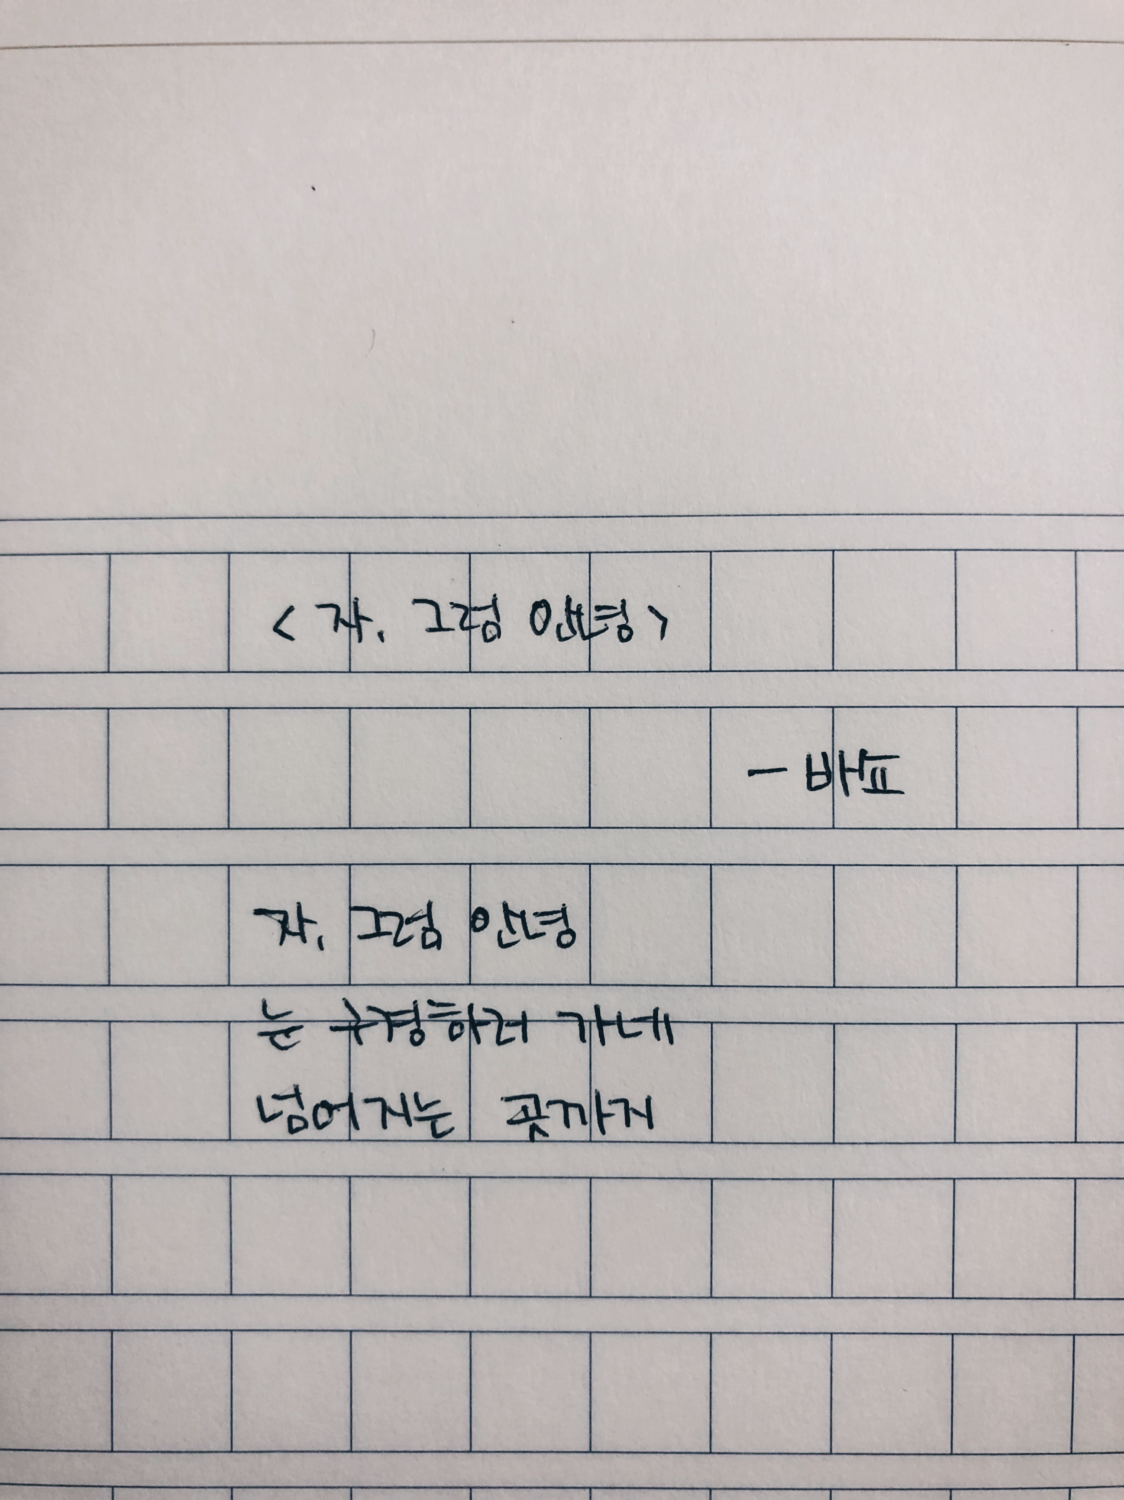 <자, 그럼 안녕>
- 바쇼
자, 그럼 안녕
눈 구경하러 가네
넘어지는 곳까지